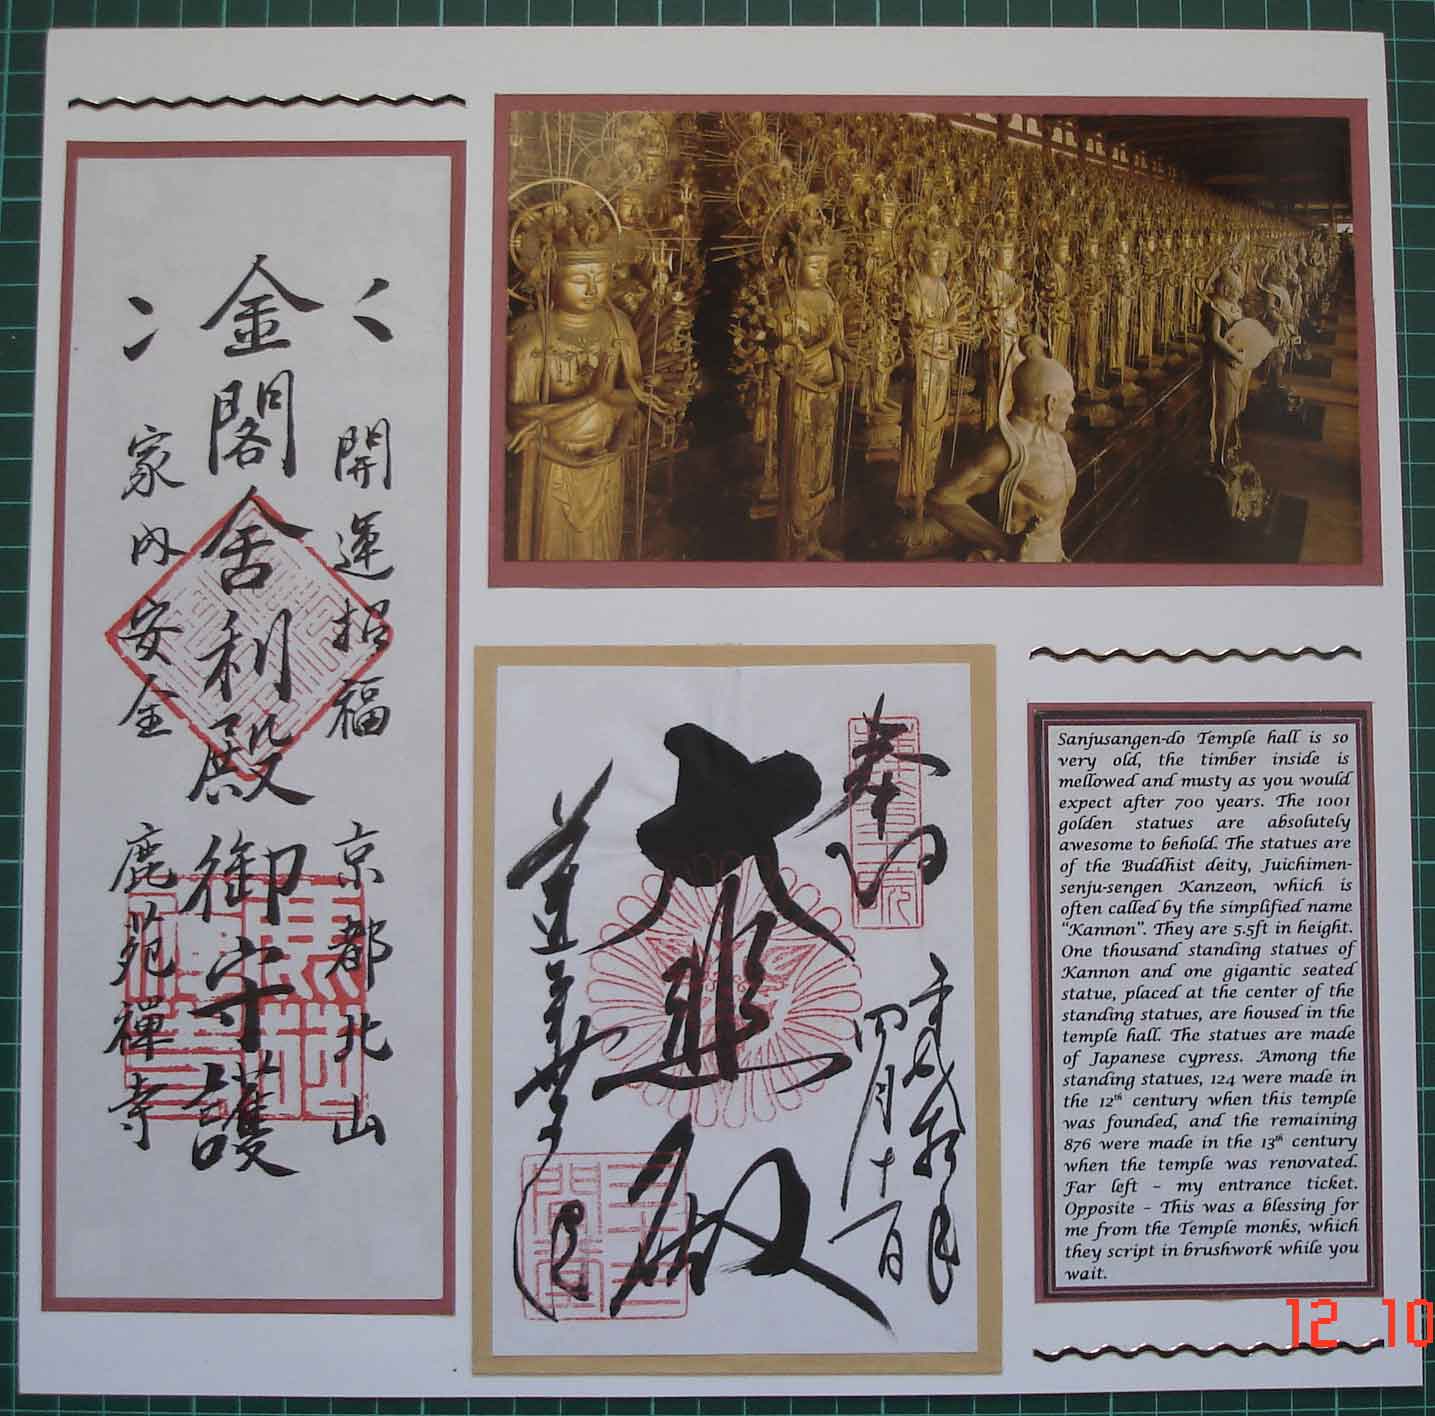 開運招福 京都北山
金閣舎利殿御守護
家内安全 鹿苑禪寺
奉拝
四月十一日
大悲殿
蓮華王院
三十三間堂
Sanjusangen-do Temple hall is so
very old, the timber inside is
mellowed and musty as you would
expect after 700 years. The 1001
golden statues are absolutely
awesome to behold. The statues are
of the Buddhist deity, Juichimen-
senju-sengen Kanzeon, which is
often called by the simplified name
“Kannon”. They are 5.5ft in height.
One thousand standing statues of
Kannon and one gigantic seated
statue, placed at the center of the
standing statues, are housed in the
temple hall. The statues are made
of Japanese cypress. Among the
standing statues, 124 were made in
the 12th century when this temple
was founded, and the remaining
876 were made in the 13th century
when the temple was renovated.
Far left – my entrance ticket.
Opposite – This was a blessing for
me from the Temple monks, which
they script in brushwork while you
wait.
12 10